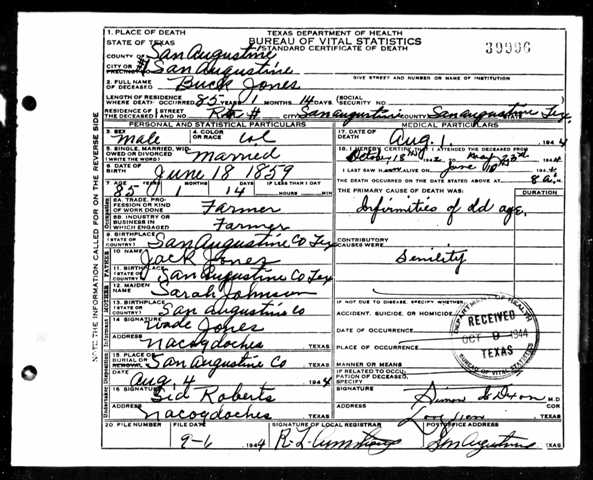 1. PLACE OF DEATH
STATE OF TEXAS
TEXAS DEPARTMENT OF HEALTH
BUREAU OF VITAL STATISTICS
STANDARD CERTIFICATE OF DEATH
39996
COUNTY OF San Augustine
CITY OR PRECINCT NO. #1 San Augustine
GIVE STREET AND NUMBER OR NAME OF INSTITUTION
2. FULL NAME OF DECEASED Buck Jones
LENGTH OF RESIDENCE WHERE DEATH OCCURRED 85 YEARS 1 MONTHS 14 DAYS SOCIAL SECURITY NO.
RESIDENCE OF THE DECEASED STREET AND NO. CITY San Augustine COUNTY San Augustine Tex.
PERSONAL AND STATISTICAL PARTICULARS
3. SEX Male
4. COLOR OR RACE Col
5. SINGLE, MARRIED, WIDOWED OR DIVORCED (WRITE THE WORD) Married
6. DATE OF BIRTH June 18 1859
7. AGE 85 YEARS 1 MONTHS 14 DAYS IF LESS THAN 1 DAY HOURS MIN
8A. TRADE, PROFESSION OR KIND OF WORK DONE Farmer
8B. INDUSTRY OR BUSINESS IN WHICH ENGAGED Farmer
9. BIRTHPLACE (STATE OR COUNTRY) San Augustine Co Tex
FATHER
10. NAME Jack Jones
11. BIRTHPLACE (STATE OR COUNTRY) San Augustine Co Tex
MOTHER
12. MAIDEN NAME Sarah Johnson
13. BIRTHPLACE (STATE OR COUNTRY) San Augustine Co
14. SIGNATURE Wade Jones
ADDRESS Nacogdoches TEXAS
15. PLACE OF BURIAL OR REMOVAL San Augustine Co
DATE Aug. 4 1944
16. SIGNATURE Sid Roberts
ADDRESS Nacogdoches TEXAS
MEDICAL PARTICULARS
17. DATE OF DEATH Aug. 1 1944
18. I HEREBY CERTIFY THAT I ATTENDED THE DECEASED FROM
October 18 1942 TO May 23rd 1944
I LAST SAW ALIVE ON June 1944
THE DEATH OCCURRED ON THE DATE STATED ABOVE AT 8 a. M.
THE PRIMARY CAUSE OF DEATH WAS:
DURATION
Infirmities of old age.
CONTRIBUTORY CAUSES WERE
Senility
IF NOT DUE TO DISEASE, SPECIFY WHETHER:
ACCIDENT, SUICIDE, OR HOMICIDE
DATE OF OCCURRENCE
PLACE OF OCCURRENCE
MANNER OR MEANS
IF RELATED TO OCCUPATION OF DECEASED, SPECIFY
SIGNATURE Dixon M.D.
COR
ADDRESS TEXAS
DEPARTMENT OF HEALTH
RECEIVED
OCT 9 1944
TEXAS
BUREAU OF VITAL STATISTICS
20. FILE NUMBER
FILE DATE 9-6 1944
SIGNATURE OF LOCAL REGISTRAR R. L. Armstrong
POSTOFFICE ADDRESS San Augustine TEXAS
NOTE: THE INFORMATION CALLED FOR ON THE REVERSE SIDE